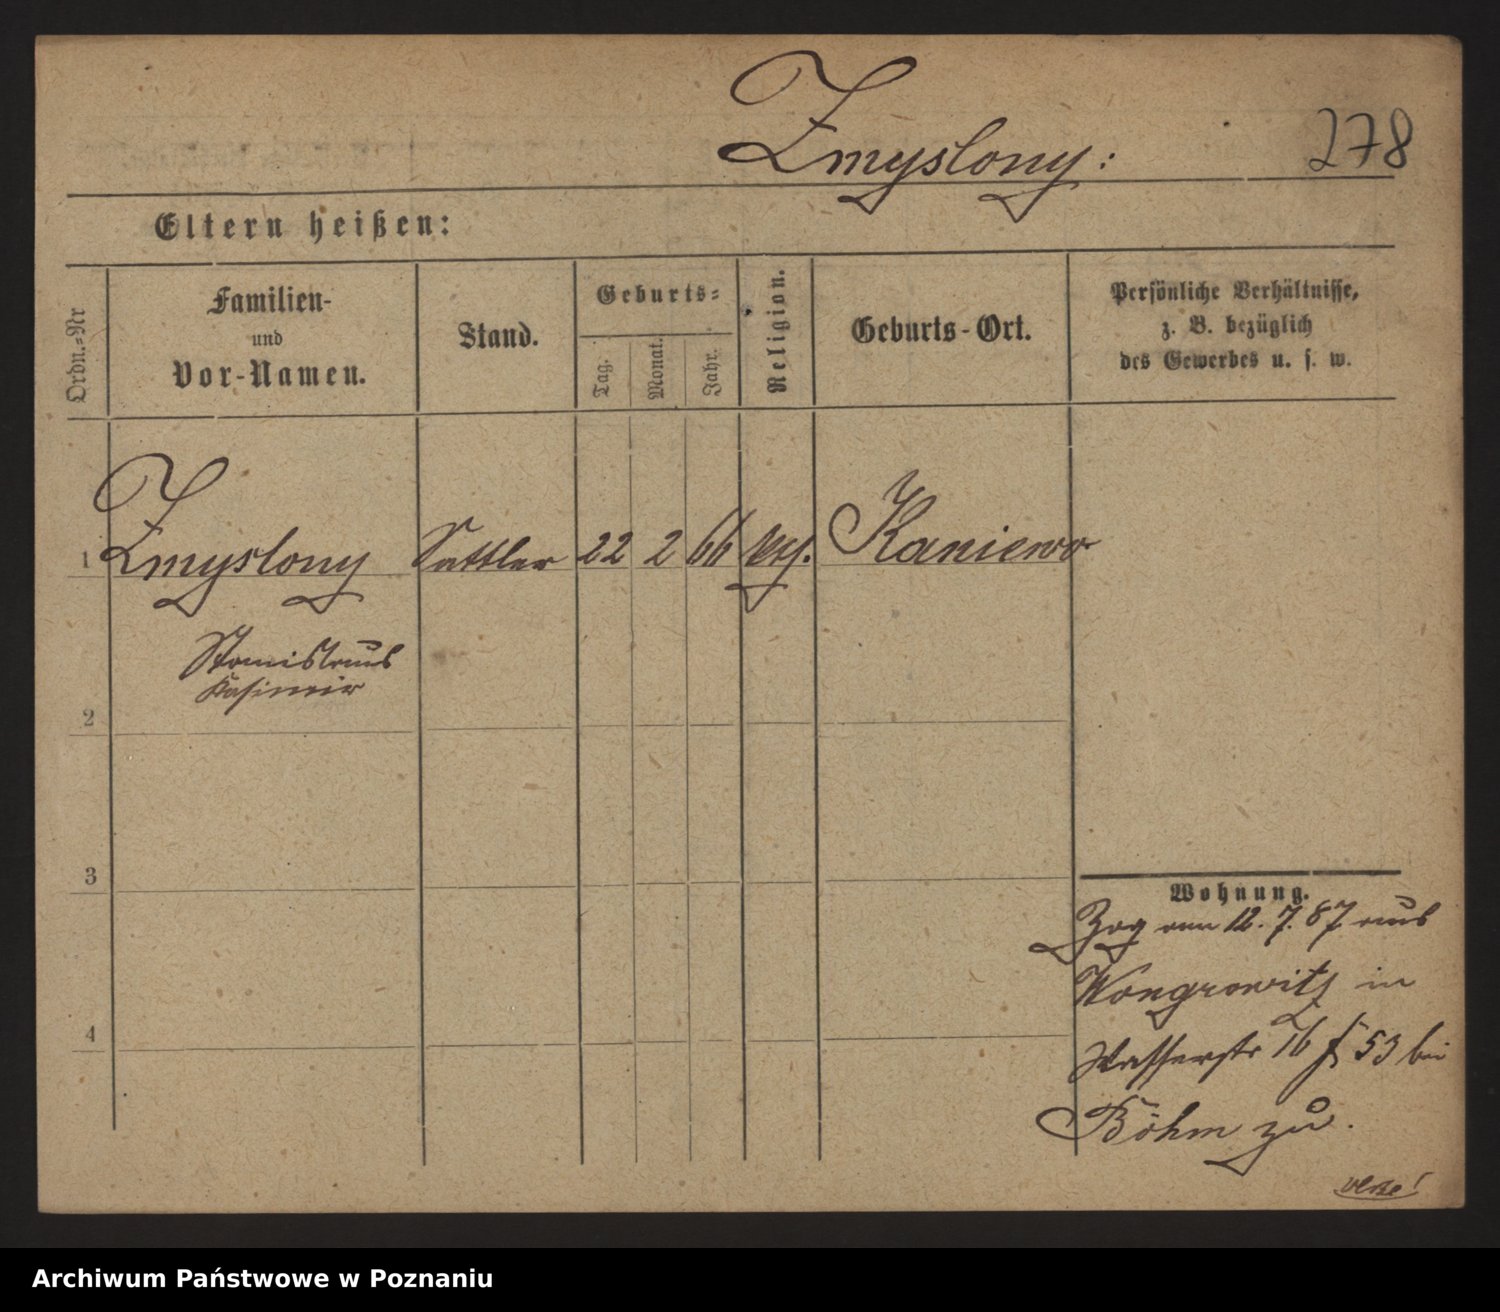 Zmyslony:
278
Eltern heißen:
Ordn.=Nr
Familien-
und
Vor-Namen.
Stand.
Geburts=
Tag.
Monat.
Jahr.
Religion.
Geburts-Ort.
Persönliche Verhältnisse,
z. B. bezüglich
des Gewerbes u. s. w.
1 Zmyslony Sattler 22 2 66 kth. Kaniewo
Stanislaus
Kasimir
2
3
4
Wohnung.
Zog am 12. 7. 87 aus
Wongrowitz in
Wasserstr 16 53 bei
Böhm zu.
verte!
Archiwum Państwowe w Poznaniu